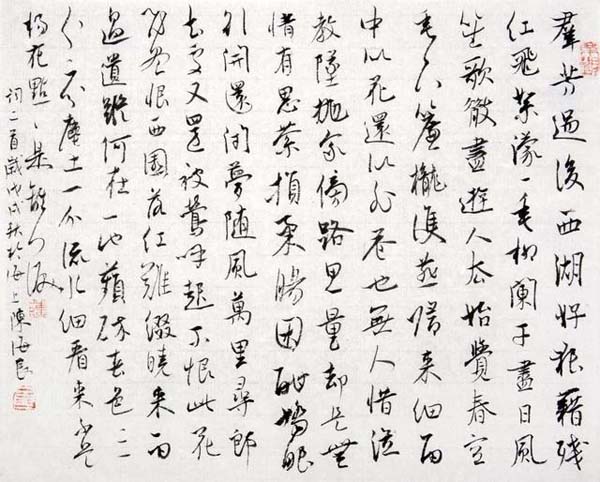 羣芳過後西湖好狼藉殘
紅飛絮濛々垂柳闌干盡日風
笙歌散盡遊人去始覺春空
垂下簾櫳雙燕歸來細雨
中似花還似非花也無人惜從
教墜抛家傍路思量却是無
情有思縈損柔腸困酣嬌眼
欲開還閉夢隨風萬里尋郎
去處又還被鶯呼起不恨此花
飛盡恨西園落紅難綴曉來雨
過遺蹤何在一池蘋碎春色三
分二分塵土一分流水細看來不是
楊花點々是離人淚
詞二首歲戊戌秋於海上陳海良